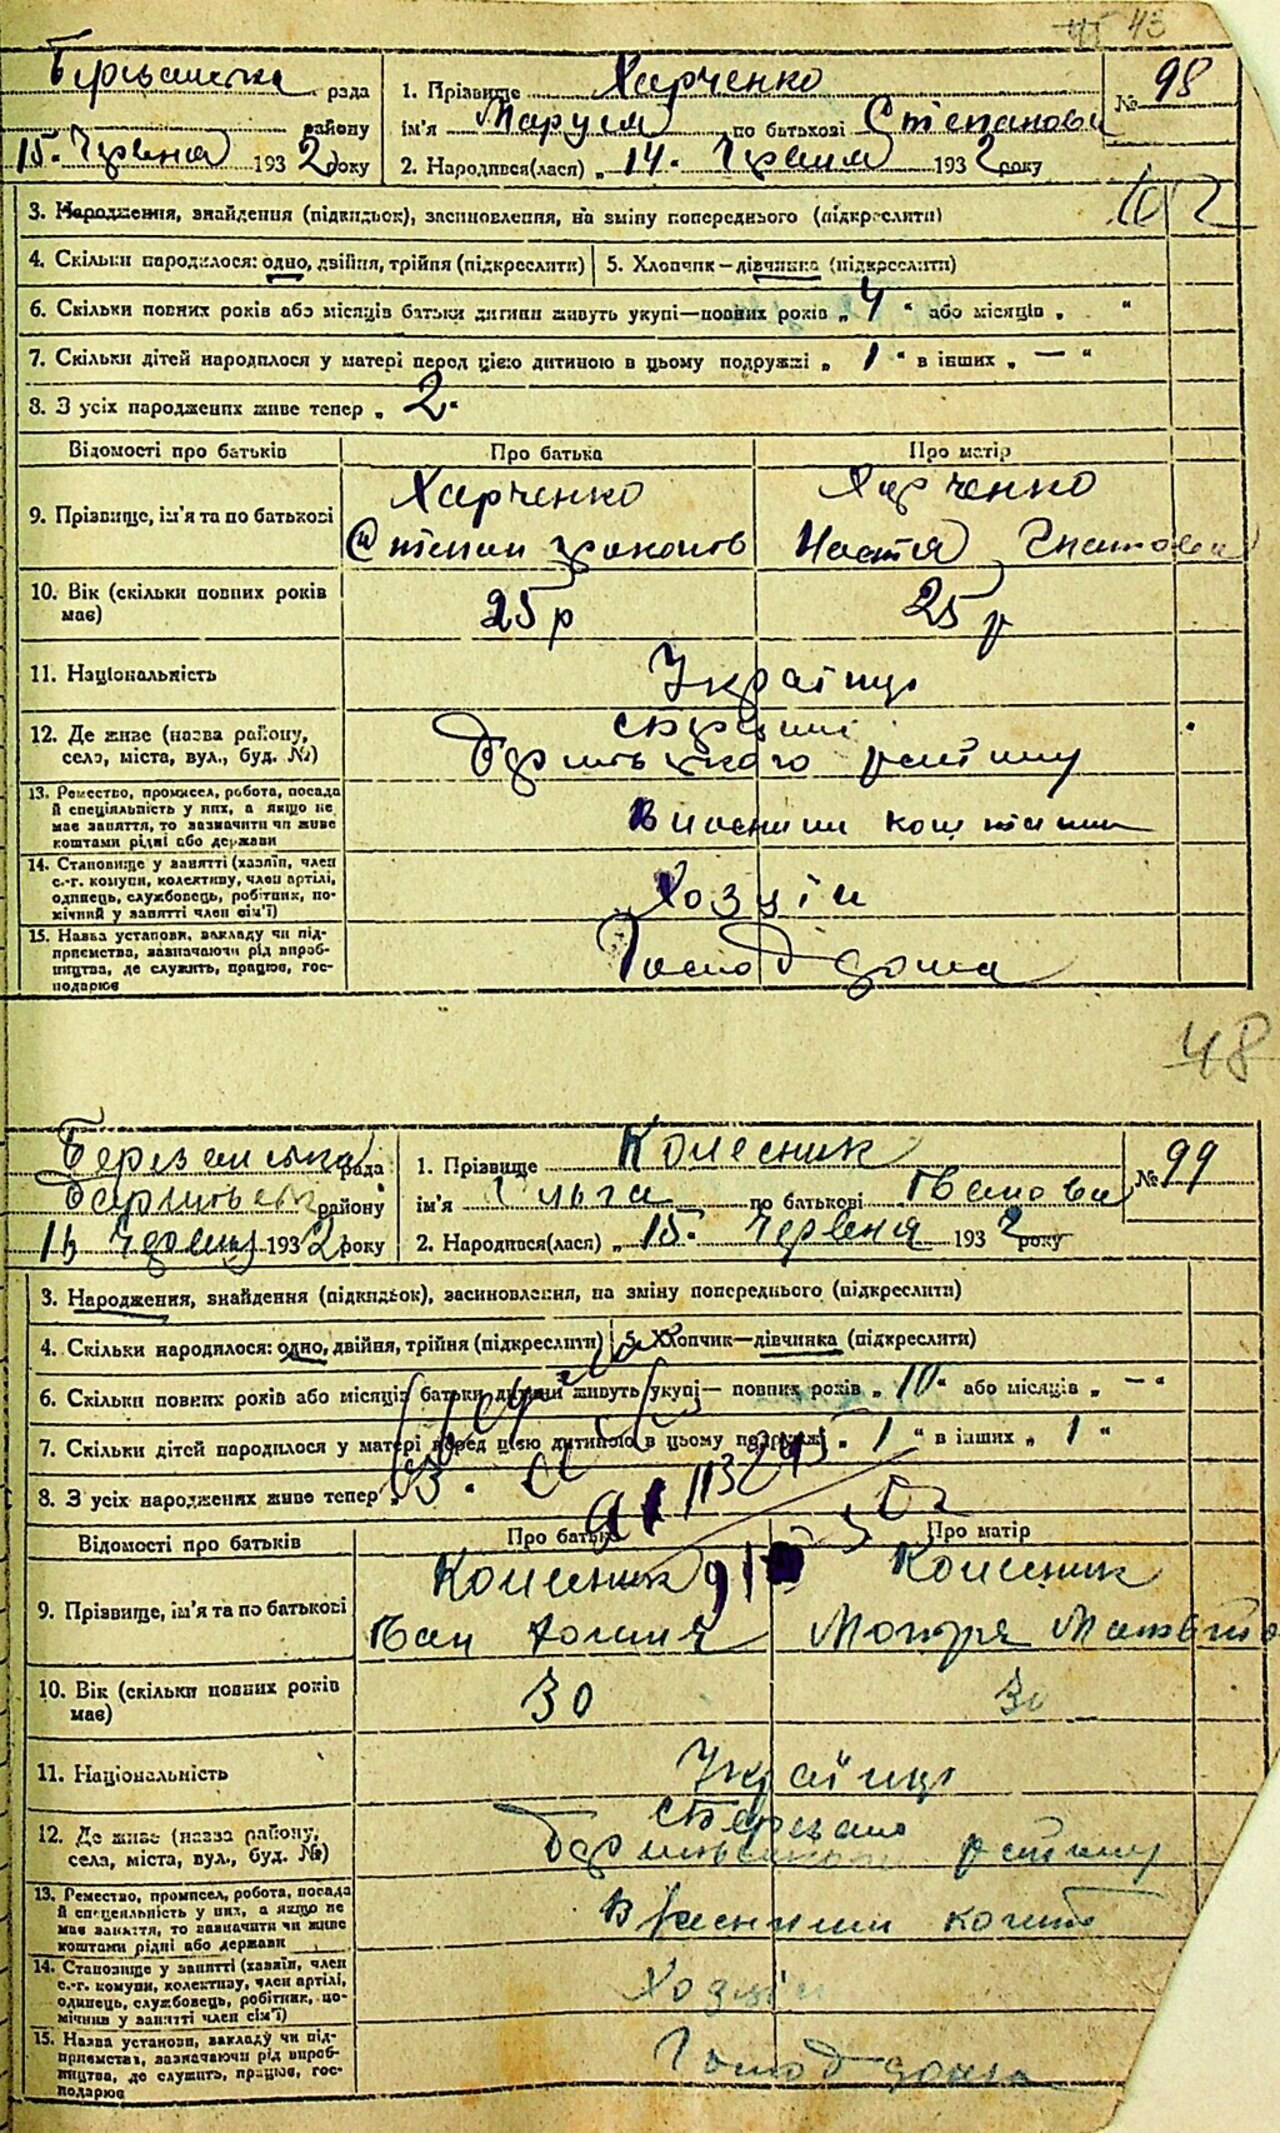 43
рада
1. Прізвище Харченко
№ 98
району
ім'я Маруся по батькові Степанови
15. Червня 1932 року
2. Народився(лася) „ 14. Червня 1932 року
3. Народження, знайдення (підкидьок), засиновлення, на зміну попереднього (підкреслити)
4. Скільки народилося: одно, двійня, трійня (підкреслити)
5. Хлопчик—дівчинка (підкреслити)
6. Скільки повних років або місяців батьки дитини живуть укупі—повних років „ 4 “ або місяців „ “
7. Скільки дітей народилося у матері перед цією дитиною в цьому подружжі „ 1 “ в інших „ — “
8. З усіх народжених живе тепер „ 2.
Відомості про батьків
Про батька
Про матір
9. Прізвище, ім'я та по батькові
Харченко
Харченко
Настя
10. Вік (скільки повних років
має)
25 р
25 р
11. Національність
Українці
12. Де живе (назва району,
село, міста, вул., буд. №)
району
13. Ремество, промисел, робота, посада
й спеціяльність у них, а якщо не
має заняття, то зазначити чи живе
коштами рідні або держави
Власними коштами
14. Становище у занятті (хазяїн, член
с.-г. комуни, колективу, член артілі,
одинець, службовець, робітник, по-
мічний у занятті член сім'ї)
Хозяїн
15. Назва установи, закладу чи під-
приємства, зазначаючи рід вироб-
ництва, де служить, працює, гос-
подарює
Господ дома
48
Березанська рада
1. Прізвище Колесник
№ 99
району
ім'я Ольга по батькові Івановна
Червня 1932 року
2. Народився(лася) „ 15. Червня 1932 року
3. Народження, знайдення (підкидьок), засиновлення, на зміну попереднього (підкреслити)
4. Скільки народилося: одно, двійня, трійня (підкреслити)
5. Хлопчик—дівчинка (підкреслити)
6. Скільки повних років або місяців батьки дитини живуть укупі— повних років „ 10 “ або місяців „ — “
7. Скільки дітей народилося у матері перед цією дитиною в цьому подружжі „ 1 “ в інших „ 1 “
8. З усіх народжених живе тепер „ 3.
Відомості про батьків
Про батька
Про матір
9. Прізвище, ім'я та по батькові
Колесник
Колесник
Іван
Мотря
10. Вік (скільки повних років
має)
30
30
11. Національність
Українці
12. Де живе (назва району,
села, міста, вул., буд. №)
району
13. Ремество, промисел, робота, посада
й спецеяльність у них, а якщо не
має заняття, то зазначити чи живе
коштами рідні або держави
Власними кошт
14. Становище у занятті (хазяїн, член
с.-г. комуни, колективу, член артілі,
одинець, службовець, робітник, по-
мічник у занятті член сім'ї)
Хозяїн
15. Назва установи, закладу чи під-
приємства, зазначаючи рід вироб-
ництва, де служить, працює, гос-
подарює
Господ дома